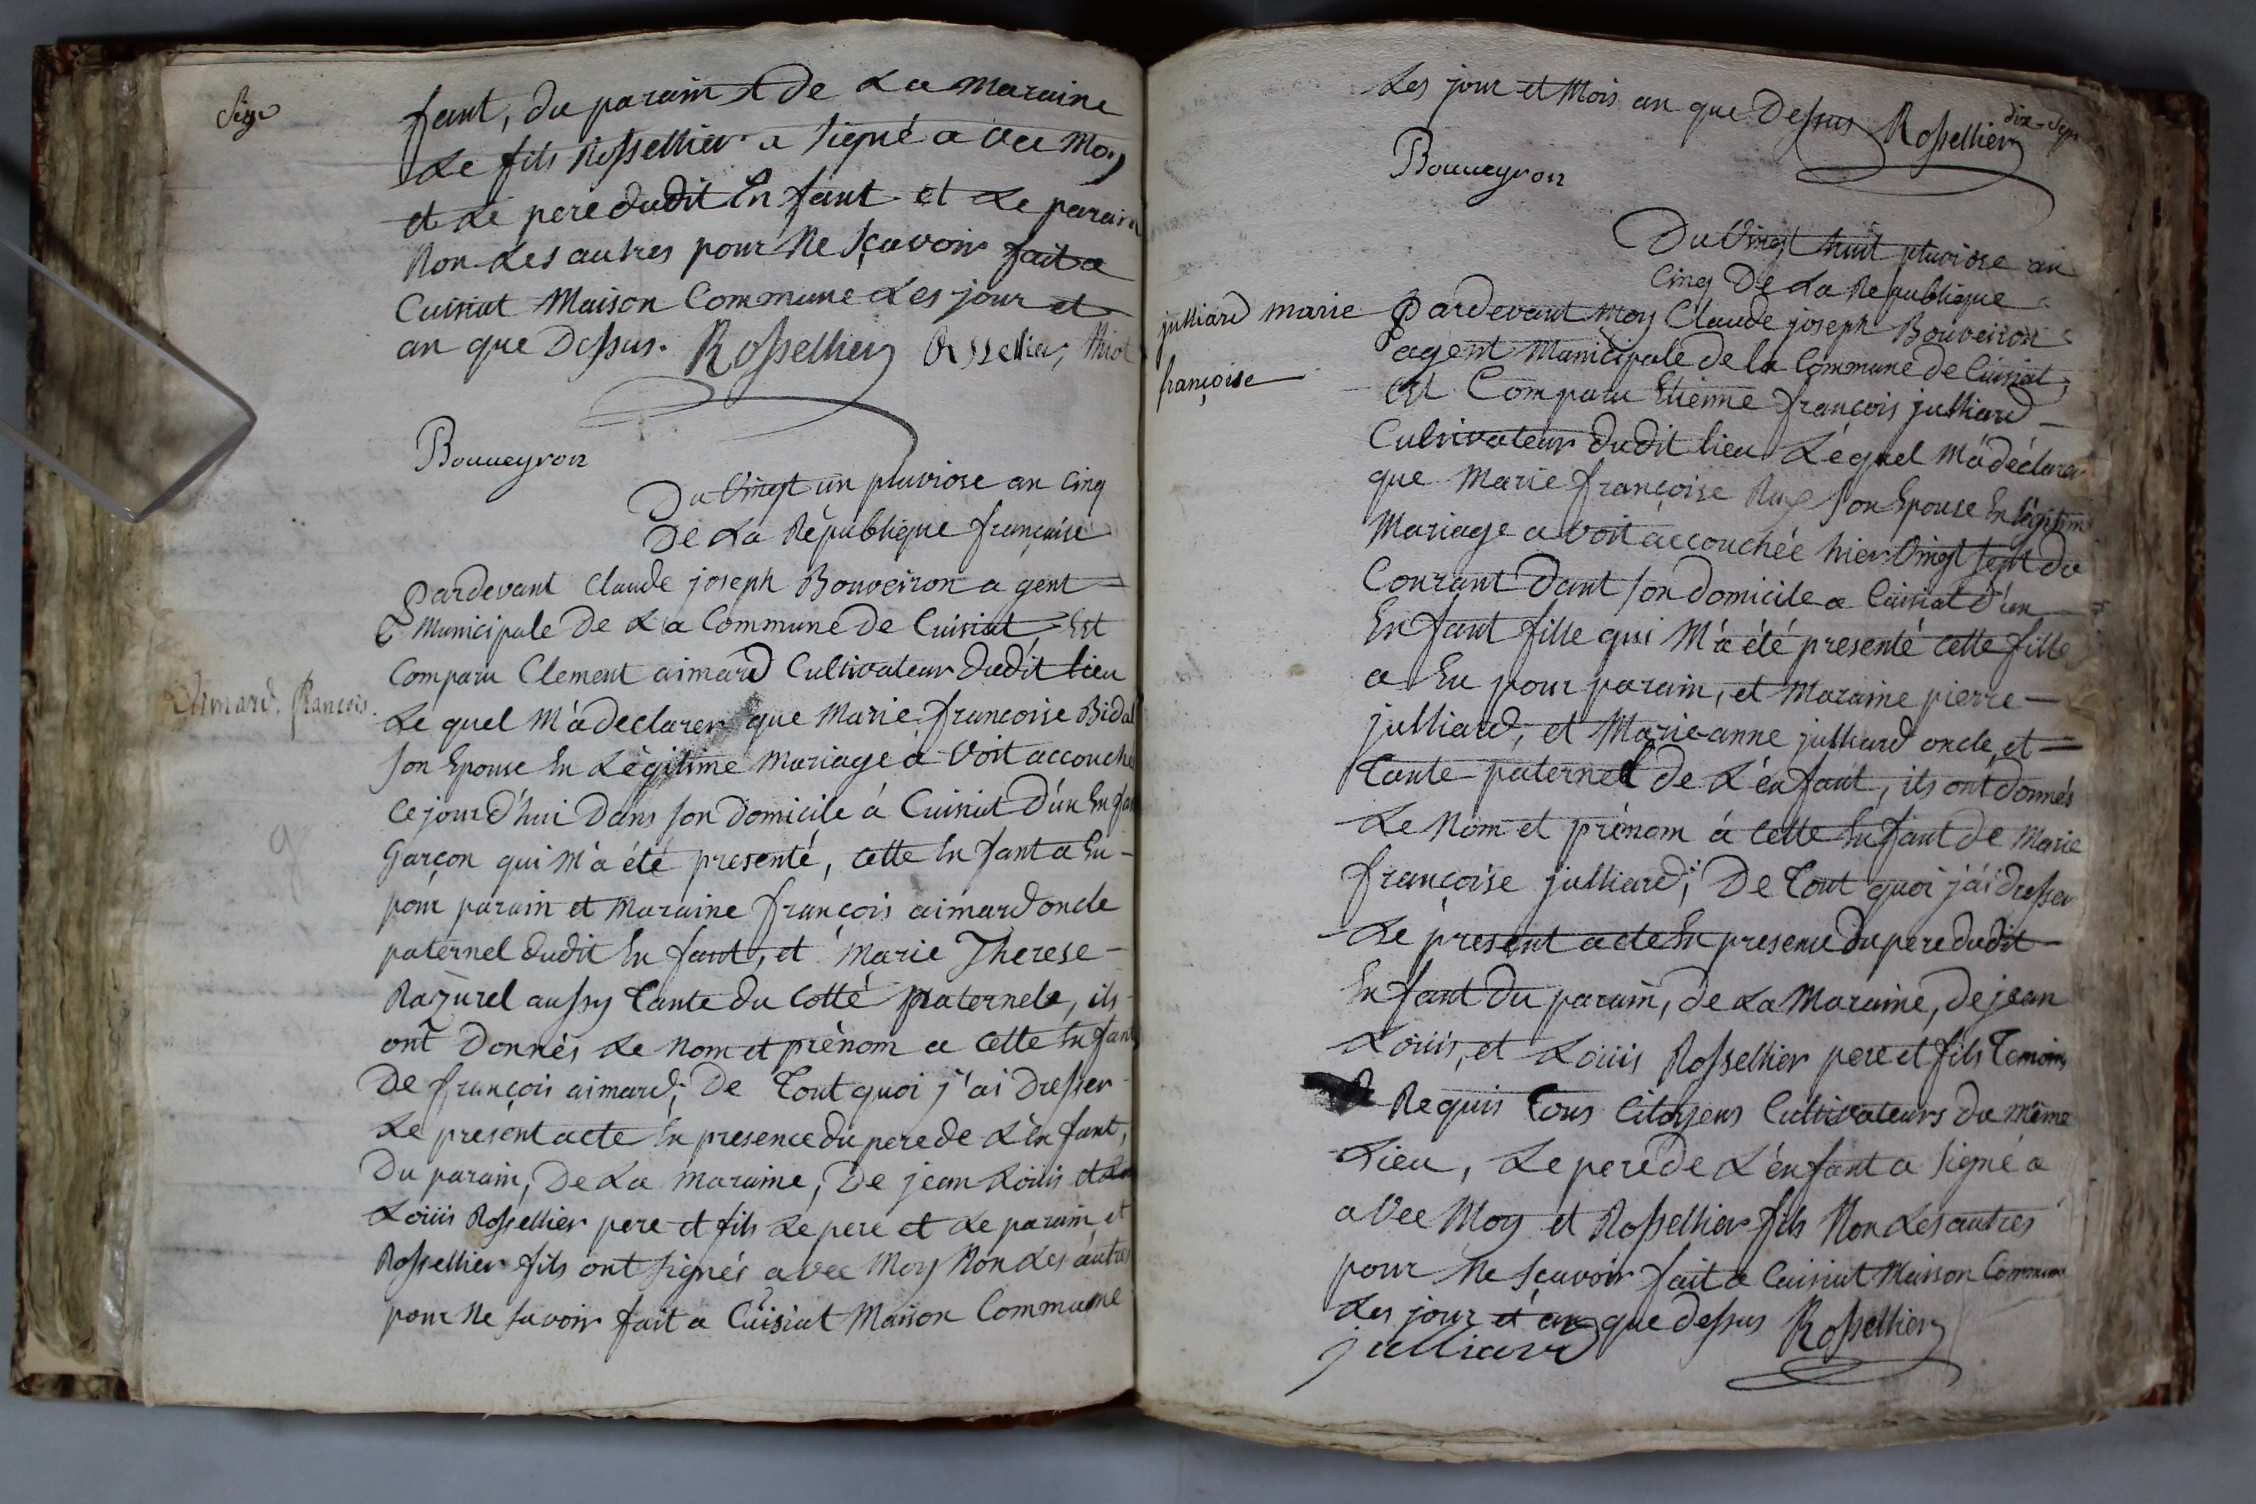 Seize
fant, du parain et de La Maraine
Le fils Rossellier a Signé a vec Moy
et Le pere dudit En fant et Le parain
Non Les autres pour Ne Sçavoir fait a
Cuisiat Maison Commune Les jour et
an que Dessus. Rossellier Rossellier
Bouueyron
Du Vingt un pluviose an Cinq
De La République françoise
Pardevant Claude joseph Bouveiron a gent
Municipale De La Commune De Cuisiat, Est
Comparu Clement aimard Cultivateur dudit lieu
Aimard françois.
Le quel M'a declarer que Marie francoise Bidal
son Epouse En Légitime Mariage a Voit accouché
Ce jour d'hui Dans son Domicile á Cuisiat D'un En fant
Garçon qui M'a été presenté, cette En fant a Eu
pour parain et Maraine françois aimard oncle
paternel dudit En fant, et Marie Therese
Razurel aussy Tante du Cotté paternele, ils
ont Donnés Le Nom et prénom a Cette En fant
De françois aimard; De Tout quoi j'ai Dresser
Le present acte En presence du pere de L'en fant,
Du parain, De La Maraine, De jean Loüis et
Loüis Rossellier pere et fils Le pere et Le parain et
Rossellier fils ont signés avec Moy Non Les autres
pour Ne savoir fait a Cuisiat Maison Commune
dix-Sept
Les jour et Mois an que Dessus Rossellier
Bouueyron
Du Vingt huit pluviose an
Cinq De La Republique
julliard marie
françoise
Pardevant Moy Claude joseph Bouveiron
agent Municipale de la Commune de Cuisiat,
est Comparu Etienne françois julliard
Cultivateur dudit lieu Léquel M'a déclarer
que Marie françoise son Epouse En légitime
Mariage a Voit accouchée hier Vingt sept du
Courant Dant son domicile a Cuisiat d'un
En fant fille qui M'a été presenté cette fille
a Eu pour parain, et Maraine pierre
julliard, et Marie-anne julliard oncle, et
Tante paternel De L'en fant, ils ont donnés
Le Nom et prénom á Cette En fant de Marie
françoise julliard; De Tout quoi j'ai dresser
Le present acte En presence du pere dudit
En fant Du parain, de La Maraine, de jean
Loüis, et Loüis Rossellier pere et fils Temoins
Requis Tous Citoyens Cultivateurs du même
Lieu, Le pere de L'en fant a Signé a
a Vec Moy et Rossellier fils Non Les autres
pour Ne Sçavoir fait a Cuisiat Maison Commune
Les jour et an que dessus Rossellier
julliard